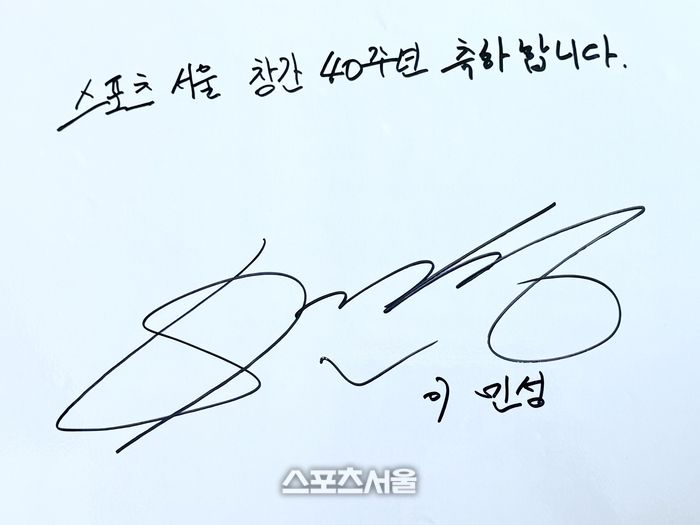 스포츠 서울 창간 40주년 축하합니다.
이민성
스포츠서울